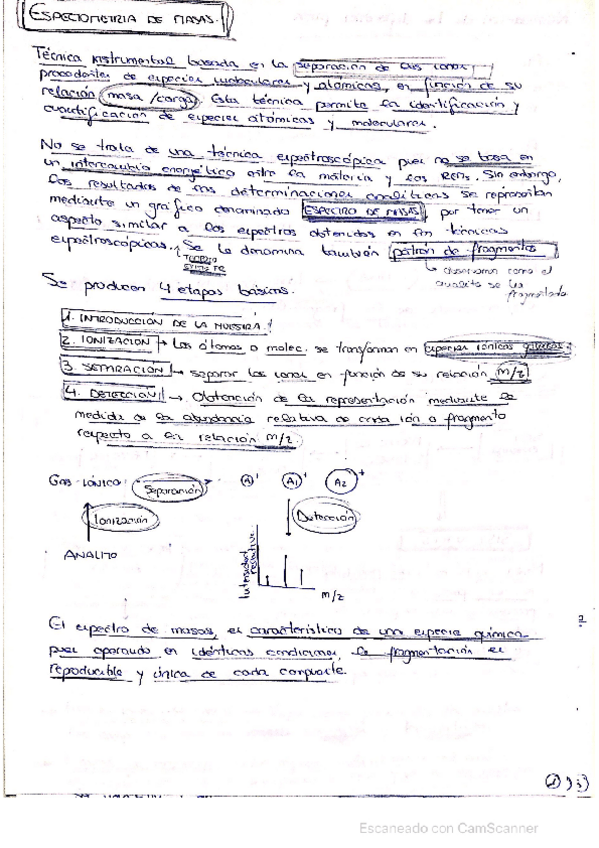 ESPECTOMETRIA DE MASAS.
Técnica instrumental basada en la separación de los iones
procedentes de especies moleculares y atómicas, en función de su
relación masa/carga. Esta técnica permite la identificación y
cuantificación de especies atómicas y moleculares.
No se trata de una técnica espectroscópica pues no se basa en
un intercambio energético entre la materia y las REMs. Sin embargo,
los resultados de las determinaciones analíticas se representan
mediante un gráfico denominado ESPECTRO DE MASAS, por tener un
aspecto similar a los espectros obtenidos en las técnicas
espectroscópicas. Se le denomina también patrón de fragmentos
observamos como el
analito se ha
fragmentado
Se producen 4 etapas básicas.
1. INTRODUCCIÓN DE LA MUESTRA.
2. IONIZACION → Los átomos o molec. se transforman en especies iónicas gaseosas.
3. SEPARACIÓN → separar los iones en función de su relación m/z
4. DETECCIÓN → Obtención de la representación mediante la
medida de la abundancia relativa de cada ión o fragmento
respecto a la relación m/z
GAS IÓNICO Separación A+ A1+ A2+
Ionización Detección
ANALITO
Intensidad relativa
m/z
El espectro de masas, es característico de una especie química
pues operando en idénticas condiciones, la fragmentación es
reproducible y única de cada compuesto.
2
Escaneado con CamScanner